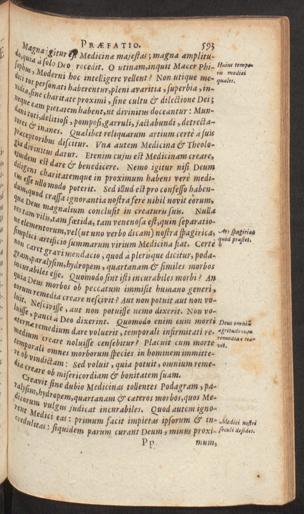 PRÆFATIO. 593
Magna igitur est Medicinæ majestas; magna amplitu-
do, quia à solo DEO procedit. O utinam, inquit Macer Phi-
losophus, Moderni hoc intelligere vellent? Non utique me-
dici tot personati haberentur, pleni avaritia, superbia, in-
vidia, sine charitate proximi, sine cultu & dilectione Dei;
neque tam petarent habent, ut divinitus doceantur: Mun-
dani toti, delitiosi, pomposi, garruli, jactabundi, detracta-
tores & inanes. Qualibet reliquarum artium certè à suis
præceptoribus discitur. Una autem Medicina & Theolo-
gia divinitùs datur. Etenim cujus est Medicinam creare,
ejusdem est dare & benedicere. Nemo igitur nisi Deum
diligens charitatemque in proximum habens verè medi-
cus esse ullo modo poterit. Sed illud est pro confesso haben-
dum, quod crassa ignorantia nostra ferè nihil novit eorum,
quæ Deus magnalium conclusit in creaturis suis. Nulla
res tam vilis, tam fœtida, tam venenosa est, quin separatio-
ne elementorum, vel (ut uno verbo dicam) nostra spagirica,
simplici artificio summarum virium Medicina fiat. Certè
non caret gravi mendacio, quod à plerisque dicitur, poda-
gram, paralysim, hydropem, quartanam & similes morbos
incurabiles esse. Quomodo sint isti incurabiles morbi? An
quia Deus morbos ob peccatum immisit humano generi,
eorum remedia creare nescivit? Aut non potuit aut non vo-
luit. Nescivisse, aut non potuisse nemo dixerit. Non vo-
luisse, parùm à Deo dixerint. Quomodo enim cum morti
æternæ remedium dare voluerit, temporali infirmitati re-
medium creare noluisse censebitur? Placuit cum morte
temporali omnes morborum species in hominem immitte-
re ob vindictam: Sed voluit, quia potuit, omnium reme-
dia creare ob misericordiam & bonitatem suam.
Creavit sine dubio Medicinas tollentes Podagram, pa-
ralysim, hydropem, quartanam & cæteros morbos, quos Me-
dicorum vulgus judicat incurabiles. Quod autem igno-
rent Medici eas: primum facit impietas ipsorum & in-
credulitas: siquidem parùm curant Deum, minus proxi-
Pp mum,
Huius tempo-
ris medici
quales.
Ars spagirica
quid præstet.
Deus omnium
ægritudinum
remedia crea-
vit.
Medici nostri
seculi desides.